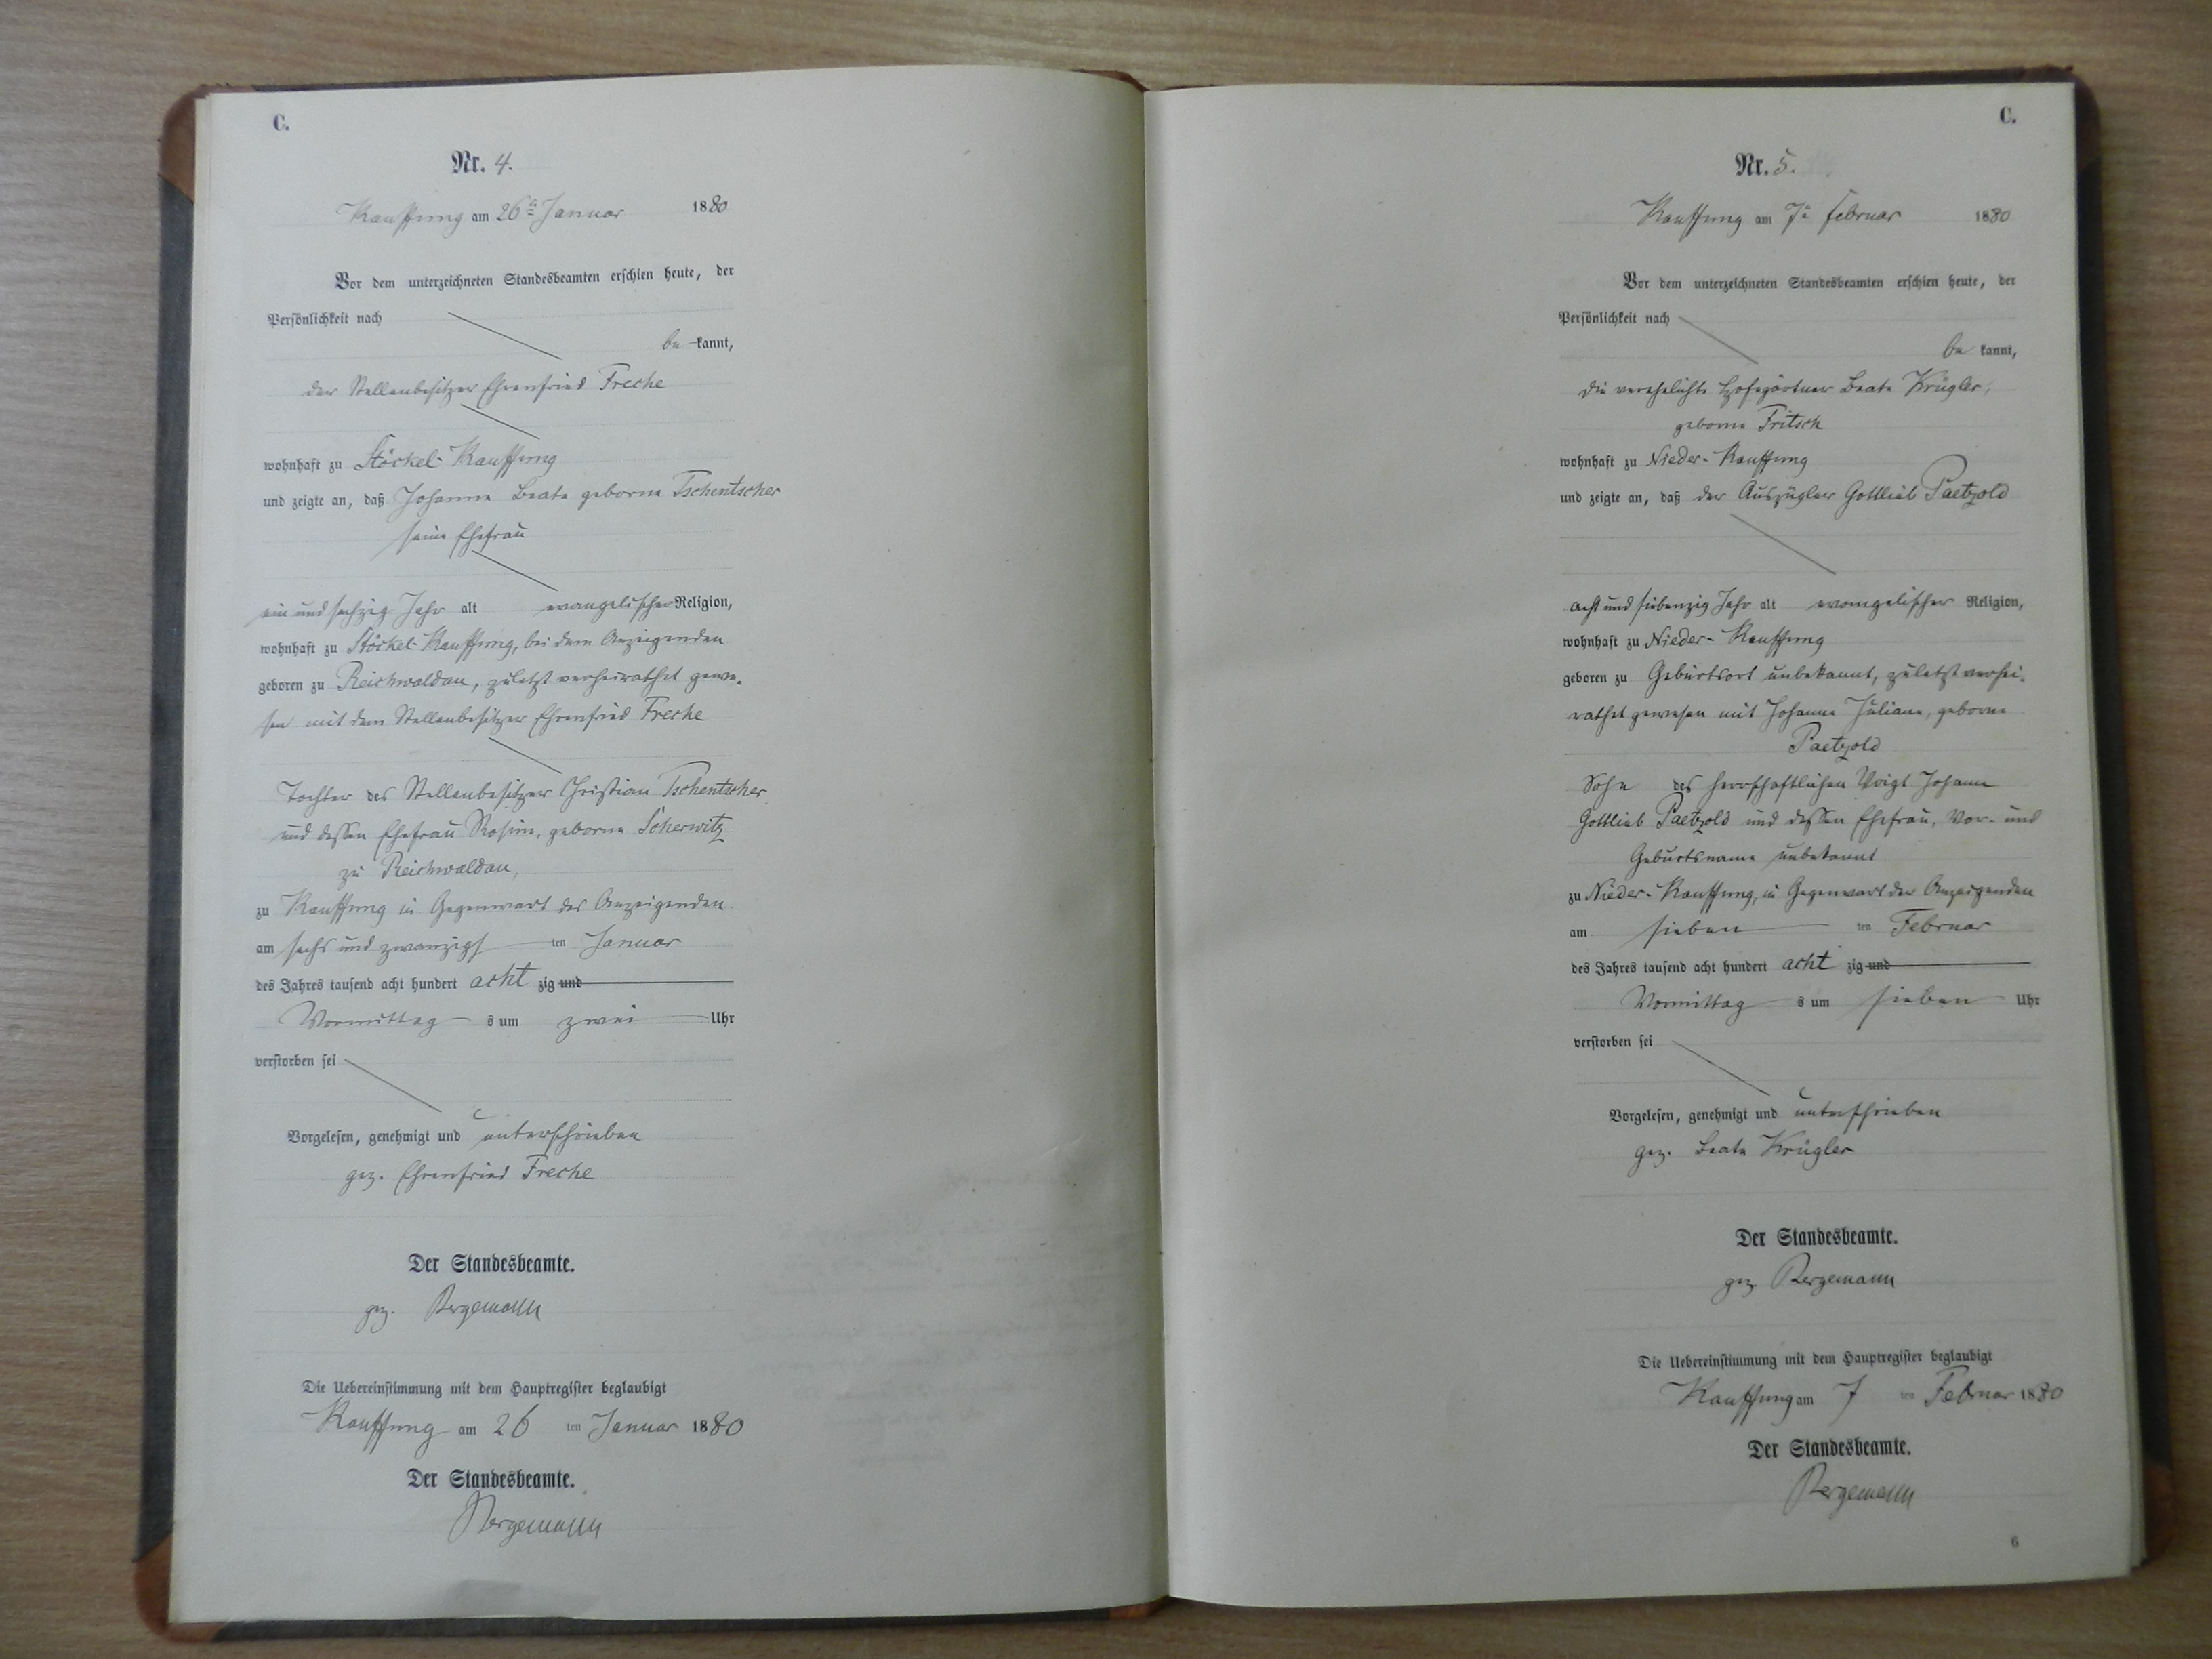 C.
Nr. 4.
Kauffung am 26ten Januar 1880
Vor dem unterzeichneten Standesbeamten erschien heute, der
Persönlichkeit nach
be kannt,
der Stellenbesitzer Ehrenfried Freche
wohnhaft zu Stöckel-Kauffung
und zeigte an, daß Johanne Beate geborne Tschentscher
seine Ehefrau
ein und sechzig Jahr alt evangelischer Religion,
wohnhaft zu Stöckel-Kauffung, bei dem Anzeigenden
geboren zu Reichwaldau, zuletzt verheirathet gewe-
sen mit dem Stellenbesitzer Ehrenfried Freche
Tochter des Stellenbesitzer Christian Tschentscher
und dessen Ehefrau Rosine, geborne Scherwitz
zu Reichwaldau,
zu Kauffung in Gegenwart des Anzeigenden
am sechs und zwanzigs ten Januar
des Jahres tausend acht hundert acht zig und
Vormittag s um zwei Uhr
verstorben sei
Vorgelesen, genehmigt und unterschrieben
gez. Ehrenfried Freche
Der Standesbeamte.
gez. Bergemann
Die Uebereinstimmung mit dem Hauptregister beglaubigt
Kauffung am 26 ten Januar 1880
Der Standesbeamte.
Bergemann
C.
Nr. 5.
Kauffung am 7n Februar 1880
Vor dem unterzeichneten Standesbeamten erschien heute, der
Persönlichkeit nach
be kannt,
die verehelichte Hofegärtner Beate Krügler,
geborne Fritsch
wohnhaft zu Nieder-Kauffung
und zeigte an, daß der Auszügler Gottlieb Paetzold
acht und siebenzig Jahr alt evangelischer Religion,
wohnhaft zu Nieder-Kauffung
geboren zu Geburtsort unbekannt, zuletzt verhei-
rathet gewesen mit Johanne Juliane, geborne
Paetzold
Sohn des herrschaftlichen Voigt Johann
Gottlieb Paetzold und dessen Ehefrau, Vor- und
Geburtsname unbekannt
zu Nieder-Kauffung, in Gegenwart der Anzeigenden
am sieben ten Februar
des Jahres tausend acht hundert acht zig und
Vormittag s um sieben Uhr
verstorben sei
Vorgelesen, genehmigt und unterschrieben
gez. Beate Krügler
Der Standesbeamte.
gez. Bergemann
Die Uebereinstimmung mit dem Hauptregister beglaubigt
Kauffung am 7 ten Februar 1880
Der Standesbeamte.
Bergemann
6